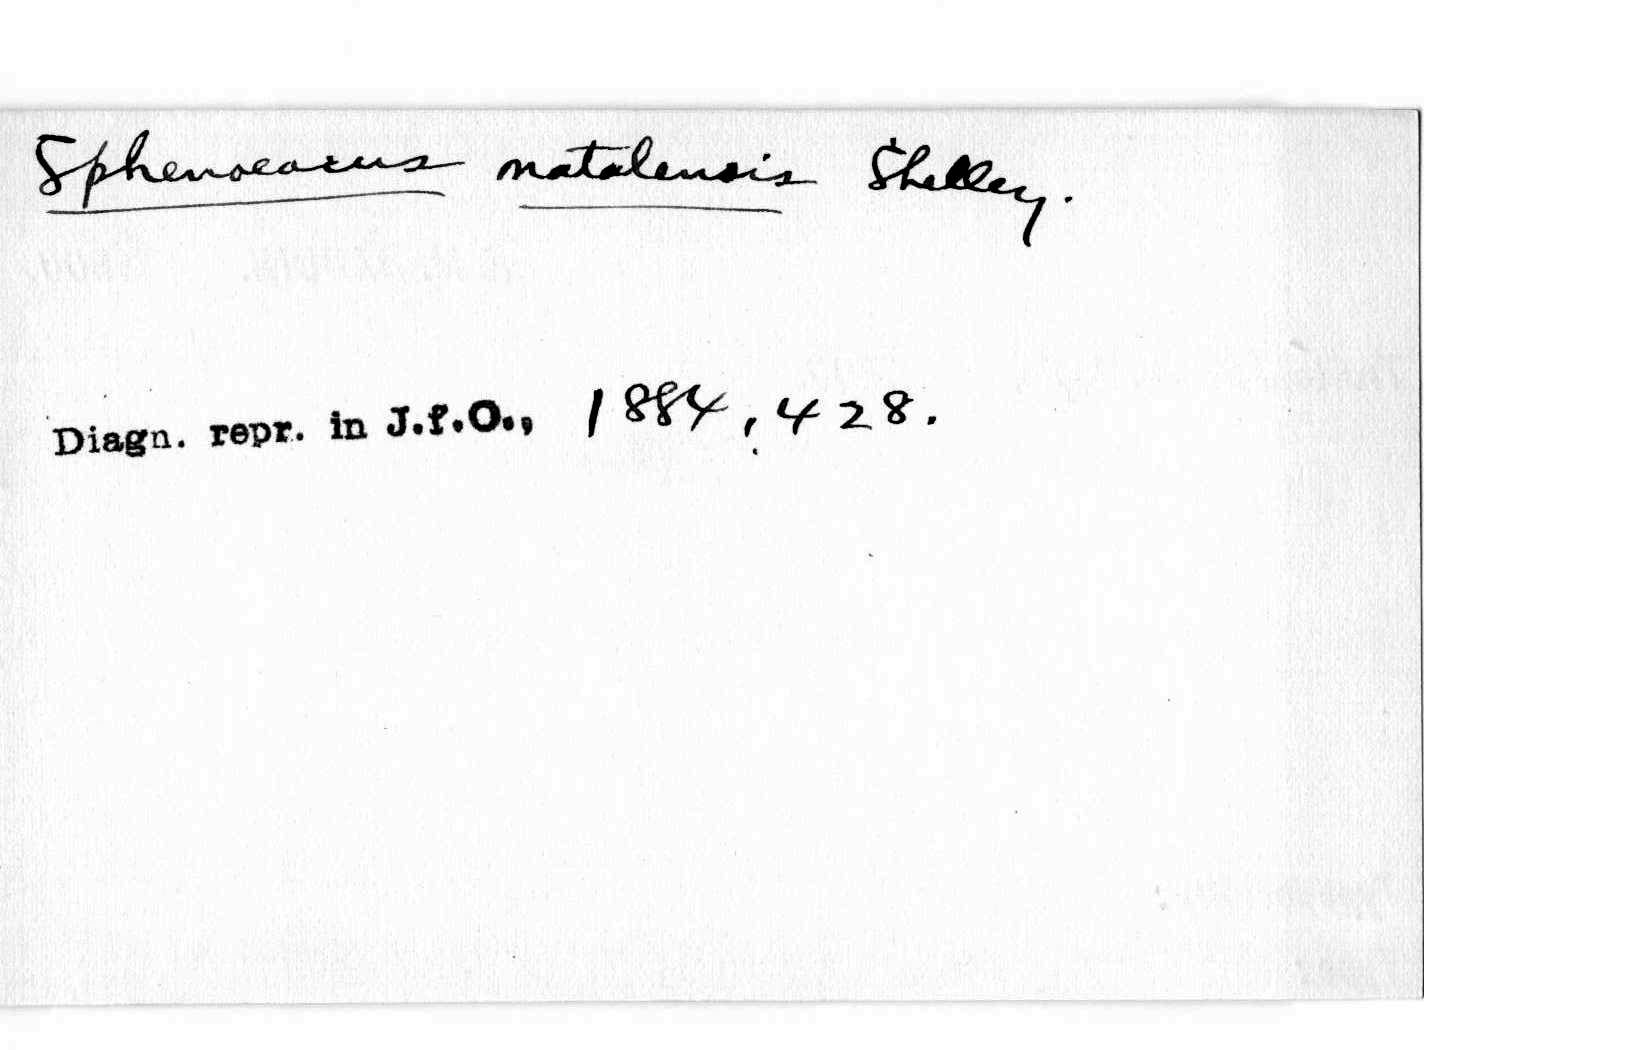 Sphenoeacus natalensis Shelley.
Diagn. repr. in J.f.O., 1884, 428.